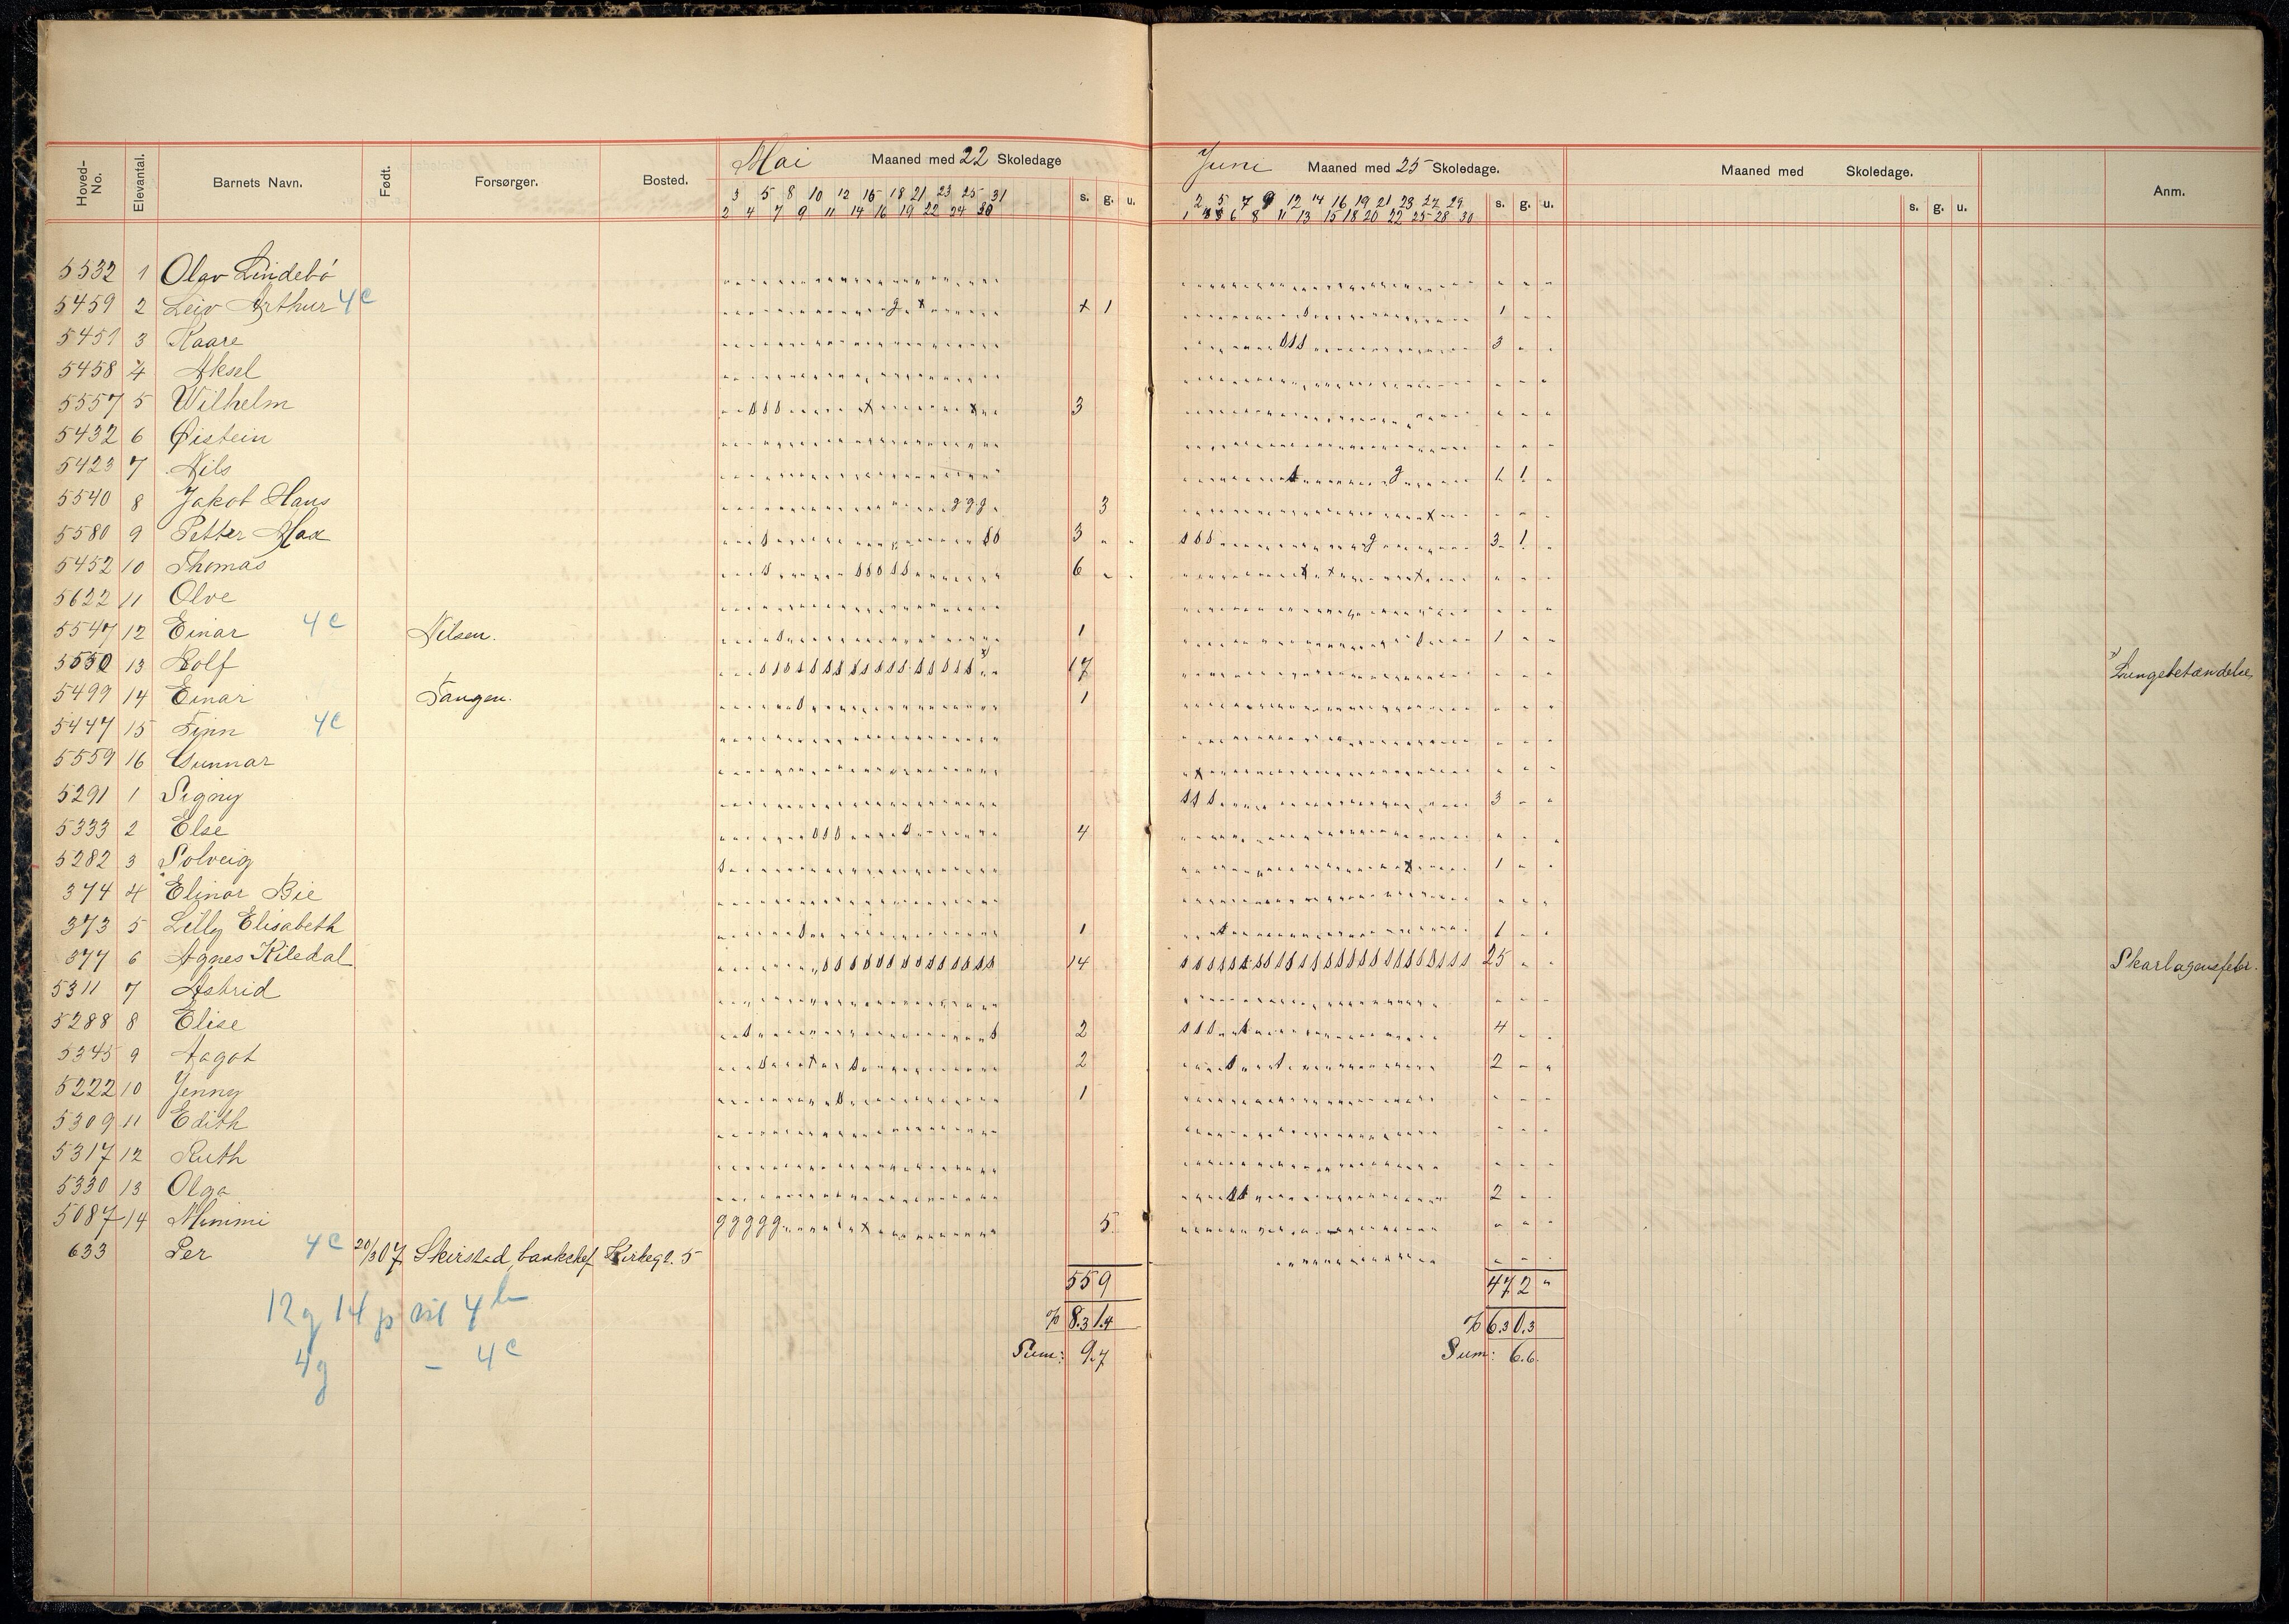 Mai Maaned med 22 Skoledage
Juni Maaned med 25 Skoledage.
Maaned med Skoledage.
Hoved-No. Elevantal. Barnets Navn. Født. Forsørger. Bosted. s. g. u. s. g. u. s. g. u. Anm.
3 5 8 10 12 15 18 21 23 25 31
2 4 7 9 11 14 16 19 22 24 30
2 5 7 9 12 14 16 19 21 23 27 29
1 6 8 11 13 15 18 20 22 25 28 30
5532 1 Olav Lindebö
5459 2 Leiv Arthur 4c + 1 1
5451 3 Kaare 3
5458 4 Aksel
5557 5 Wilhelm 3
5432 6 Øistein
5423 7 Nils 1 1
5540 8 Jakob Hans g g g 3
5580 9 Petter Max 3 3 1
5452 10 Thomas 6
5622 11 Olve
5547 12 Einar 4c Nilsen. 1 1
5550 13 Rolf 17 Lungebetændelse
5499 14 Einar Tangen. 1
5447 15 Finn 4c
5559 16 Gunnar
5291 1 Signy 3
5333 2 Else 4
5282 3 Solveig 1
374 4 Elinor Bie
373 5 Lilly Elisabeth 1 1
377 6 Agnes Kiledal 14 25 Skarlagensfeber.
5311 7 Astrid
5288 8 Elise 2 4
5345 9 Aagot 2 2
5222 10 Jenny 1
5309 11 Edith
5317 12 Ruth
5330 13 Olga 2
5087 14 Mimmi g g g g g 5
633 Per 4c 20/3 07 Skirstad, bankchef Kirkegt. 5
55 9 47 2
12g 14p til 4b % 8.3 1.4 % 6.3 0.3
4g - 4c Sum: 9.7 Sum: 6.6